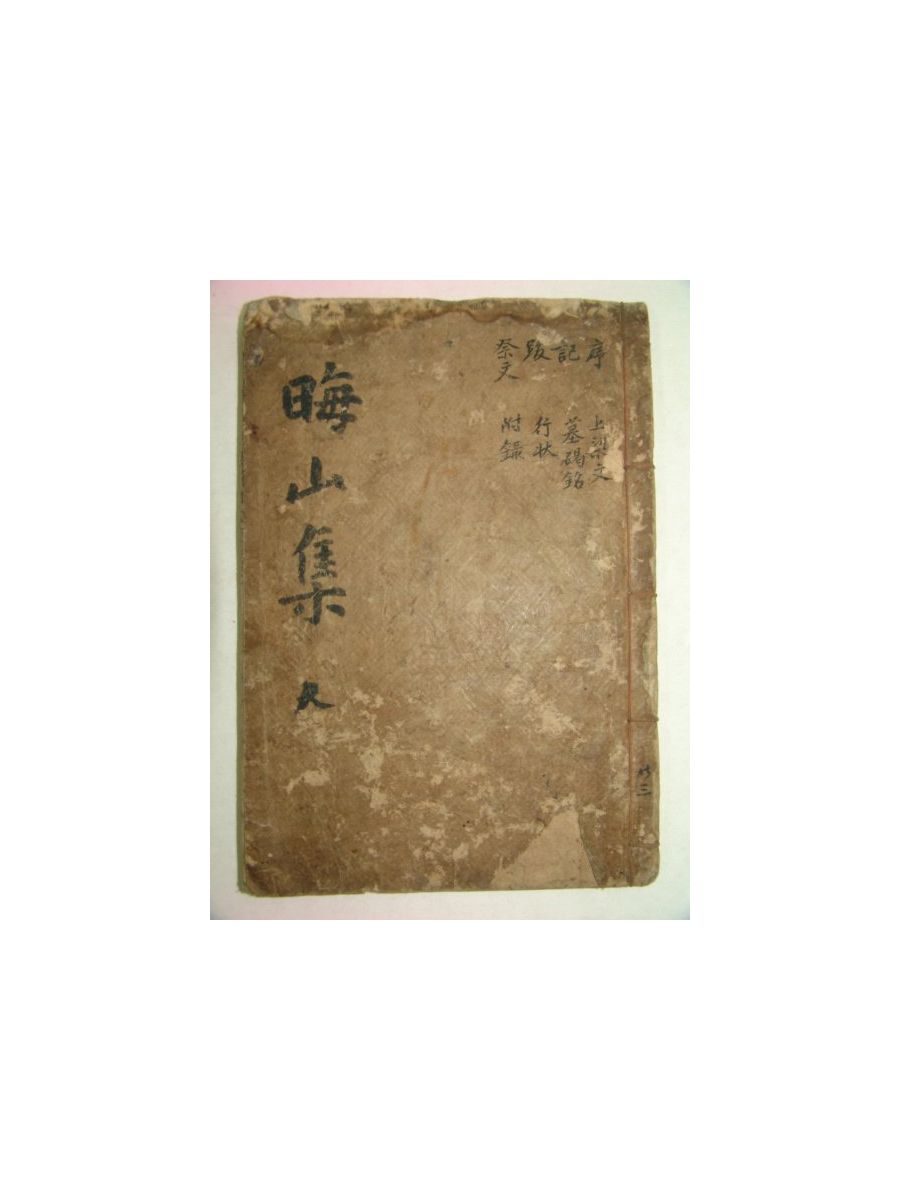 晦山集 人
序
記
跋
祭文
上梁文
墓碣銘
行状
附錄
共三